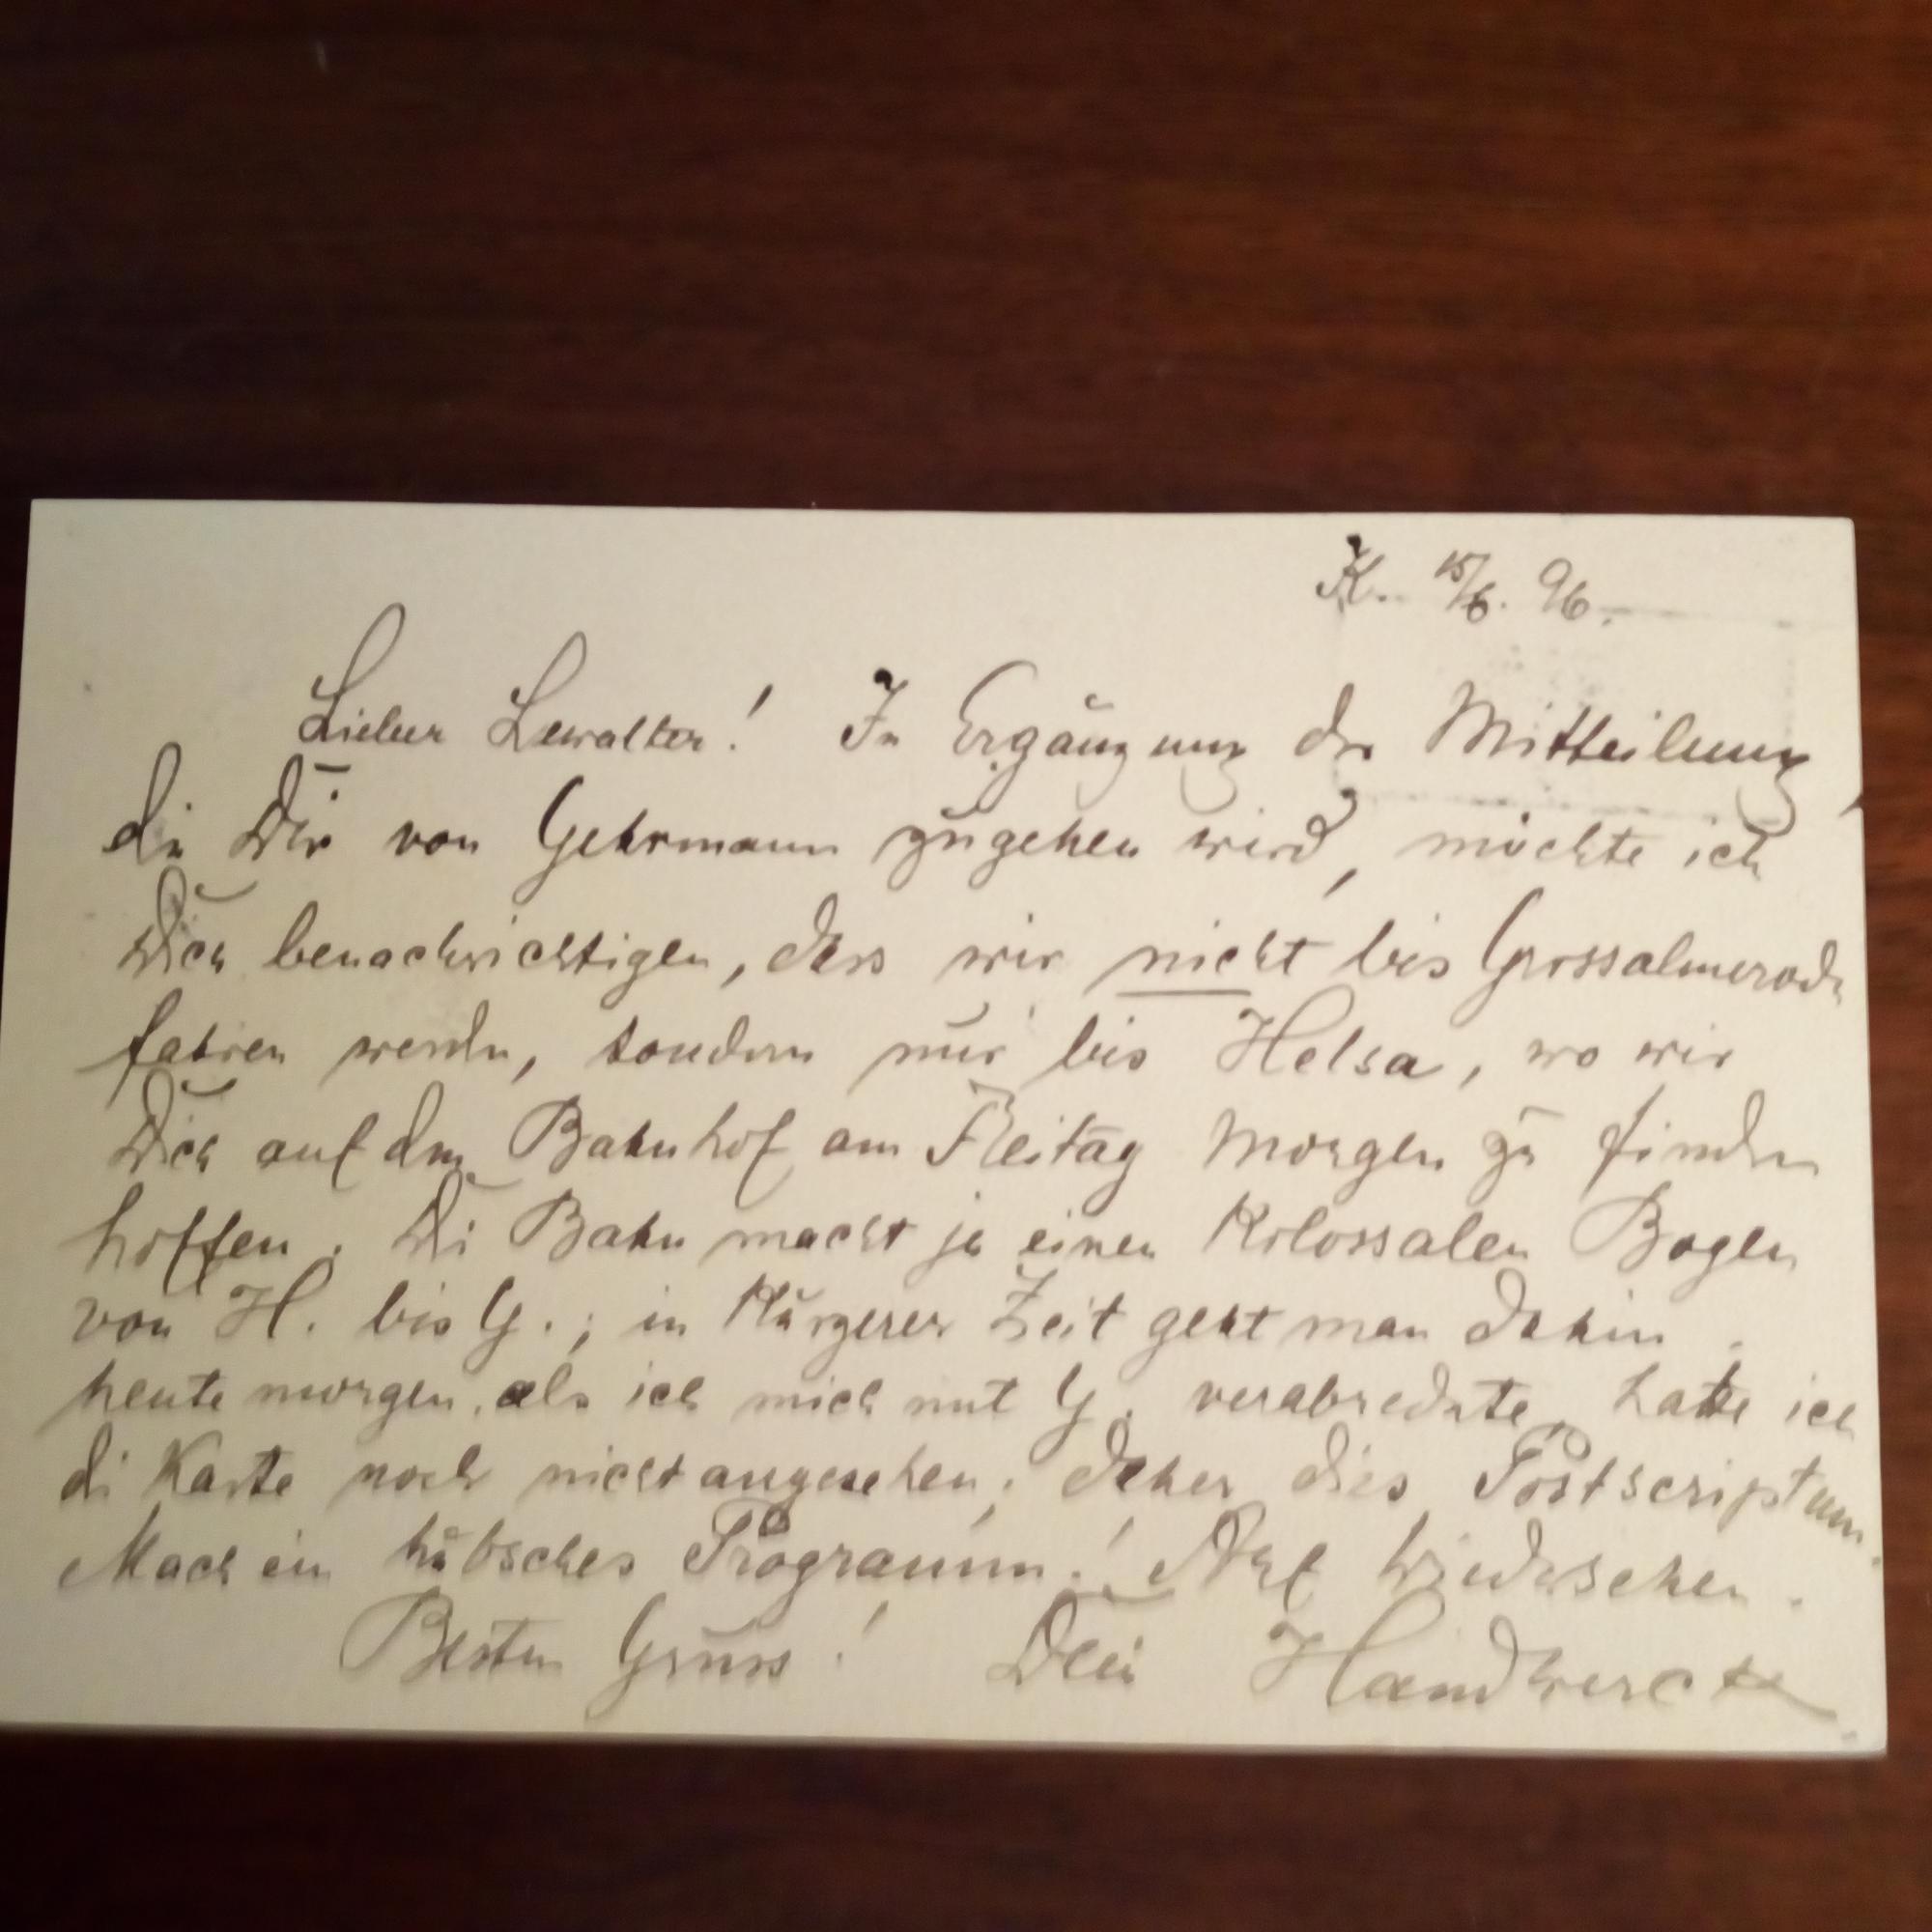 K. 15/6. 96.
Lieber Lewalter! In Ergänzung der Mitteilung
die Dir von Gehrmann zugehen wird, möchte ich
Dich benachrichtigen, dass wir nicht bis Grossalmerode
fahren werden, sondern nur bis Helsa, wo wir
Dich auf dem Bahnhof am Freitag Morgen zu finden
hoffen. Die Bahn macht ja einen Kolossalen Bogen
von H. bis G.; in Kürzerer Zeit geht man dahin.
heute morgen, als ich mich mit G. verabredete, hatte ich
die Karte noch nicht angesehen; daher dies Postscriptum.
Mach ein hübsches Programm! Auf Wiedersehen.
Besten Gruss! Dein Handwerck